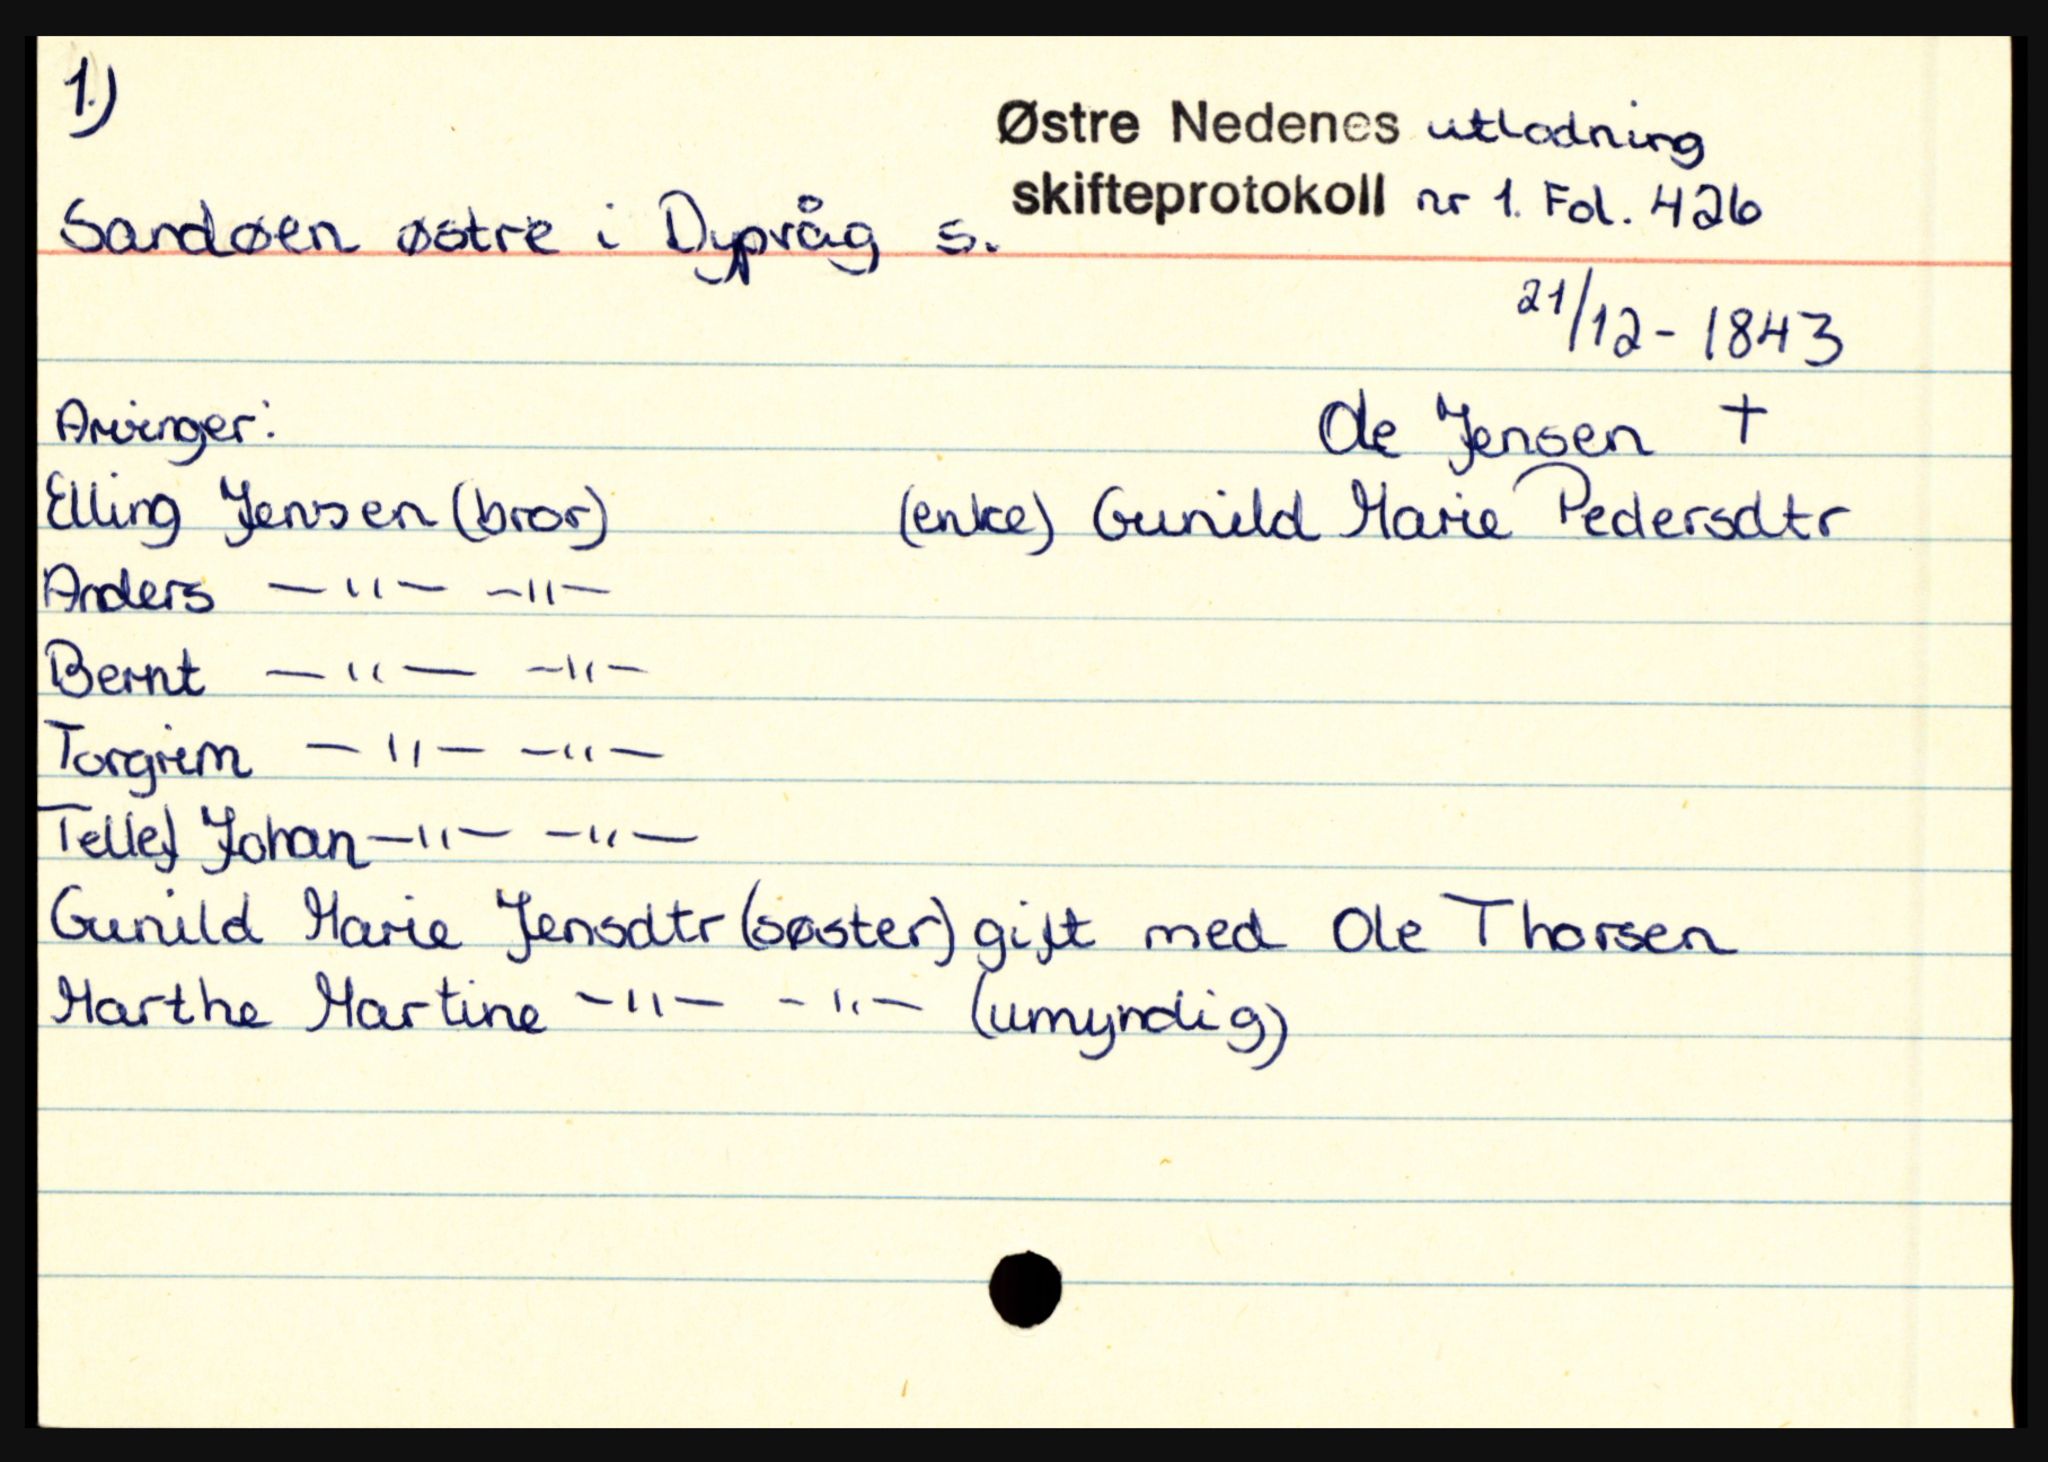 1.)
Østre Nedenes utlodning
skifteprotokoll nr 1. Fol. 426
Sandøen østre i Dypvåg s.
21/12 - 1843
Arvinger:
Ole Jensen †
Elling Jensen (bror) (enke) Gunild Marie Pedersdtr
Anders —"— —"—
Bernt —"— —"—
Torgrim —"— —"—
Tellef Johan —"— —"—
Gunild Marie Jensdtr (søster) gift med Ole Thorsen
Marthe Martine —"— —"— (umyndig)